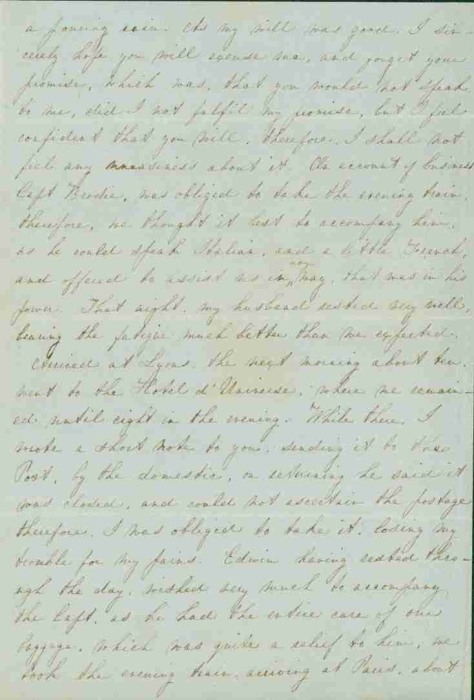 a pouring rain. As my will was good. I sin-
cerely hope you will excuse me, and forget your
promise, which was, that you would not speak
to me, did I not fulfil my promise, but I feel
confident that you will, therefore. I shall not
feel any uneasiness about it. On account of business
Capt Brodie, was obliged to take the evening train,
therefore, we thought it best to accompany him,
as he could speak Italian, and a little French,
and offered to assist us in any way, that was in his
power. That night, my husband rested very well,
bearing the fatigue much better than we expected.
Arrived at Lyons, the next morning about ten.
went to the Hotel d'Universe, where we remain-
ed until eight in the evening. While there, I
wrote a short note to you, sending it to the
Post, by the domestic, on returning he said it
was closed, and could not ascertain the postage
therefore, I was obliged to take it, losing my
trouble for my pains. Edwin having rested thro-
ugh the day, wished very much to accompany
the Capt. as he had the entire care of our
baggage, which was quite a relief to him, we
took the evening train, arriving at Paris, about